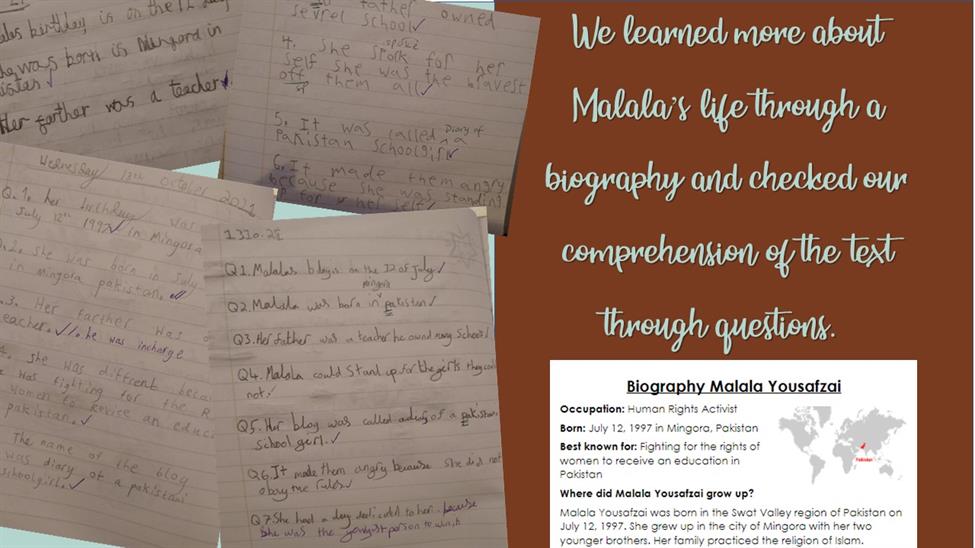 birthday is on the 12
was born is Mingora in
Her farther was a teacher
father owned
sevrel school
4. She spoke spork for her
self she was the bravest
off them all
5. It was called a Diary of
Pakistan schoolgirl
6. It made them angry
because she was standing
up for her self
Wednesday 13th October 2021
Q.1. her birthday was
July 12th 1997 in Mingora
2. she was born in July
in mingora pakistan.
3. Her farther was
teacher. he was incharge
4. she was diffrent becai
was fighting for the R
women to
pakistan.
The name of the blog
was diary of a pakistani
schoolgirl.
1310.21
Q1. Malalas bday is on the 12 of July
mingora
Q2. Malala was born in pakistan
Q3. Her father was a teacher he owned many School
Q4. Malala could Stand up for the girls they could
not.
Q5. Her blog was called a diary of a pakistan
school gerl.
Q6. It made them angry because She did not
obay the rules.
Q7. She had a day to her because
She was the person to win it
We learned more about
Malala's life through a
biography and checked our
comprehension of the text
through questions.
Biography Malala Yousafzai
Occupation: Human Rights Activist
Born: July 12, 1997 in Mingora, Pakistan
Best known for: Fighting for the rights of
women to receive an education in
Pakistan
Pakistan
Where did Malala Yousafzai grow up?
Malala Yousafzai was born in the Swat Valley region of Pakistan on
July 12, 1997. She grew up in the city of Mingora with her two
younger brothers. Her family practiced the religion of Islam.